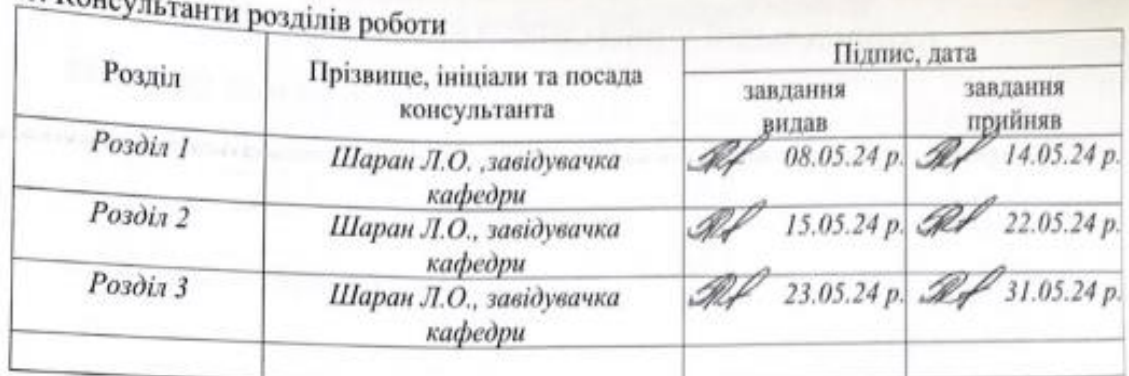 Консультанти розділів роботи
Розділ
Прізвище, ініціали та посада
консультанта
Підпис, дата
завдання
видав
завдання
прийняв
Розділ 1
Шаран Л.О. ,завідувачка
кафедри
08.05.24 р.
14.05.24 р.
Розділ 2
Шаран Л.О., завідувачка
кафедри
15.05.24 р.
22.05.24 р.
Розділ 3
Шаран Л.О., завідувачка
кафедри
23.05.24 р.
31.05.24 р.